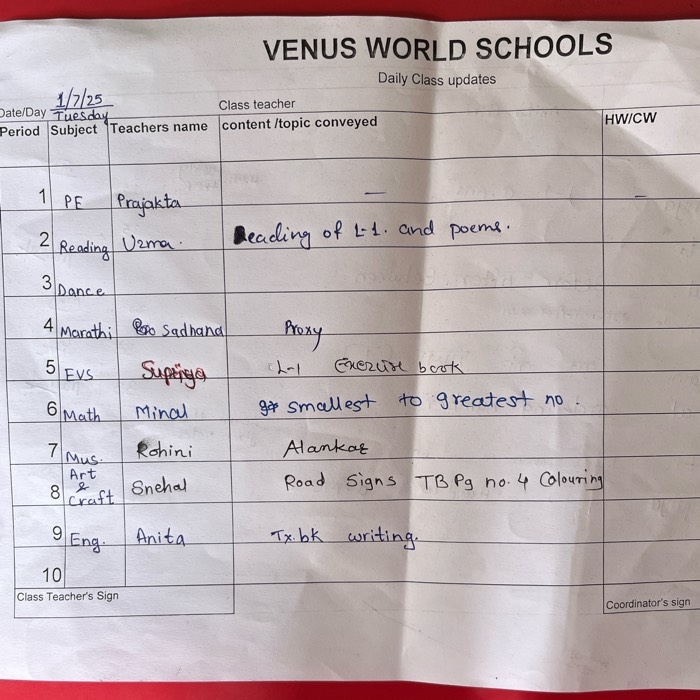 VENUS WORLD SCHOOLS
Daily Class updates
Date/Day 1/7/25 Tuesday Class teacher
Period Subject Teachers name content /topic conveyed HW/CW
1 PE Prajakta — –
2 Reading Uzma. Reading of L-1. and poems.
3 Dance
4 Marathi Sadhana Proxy
5 EVS Supriya L-1 Exercise book
6 Math Minal smallest to greatest no.
7 Mus. Rohini Alankar
8 Art & Craft Snehal Road Signs TB Pg no. 4 Colouring
9 Eng. Anita Tx.bk writing.
10
Class Teacher's Sign Coordinator's sign